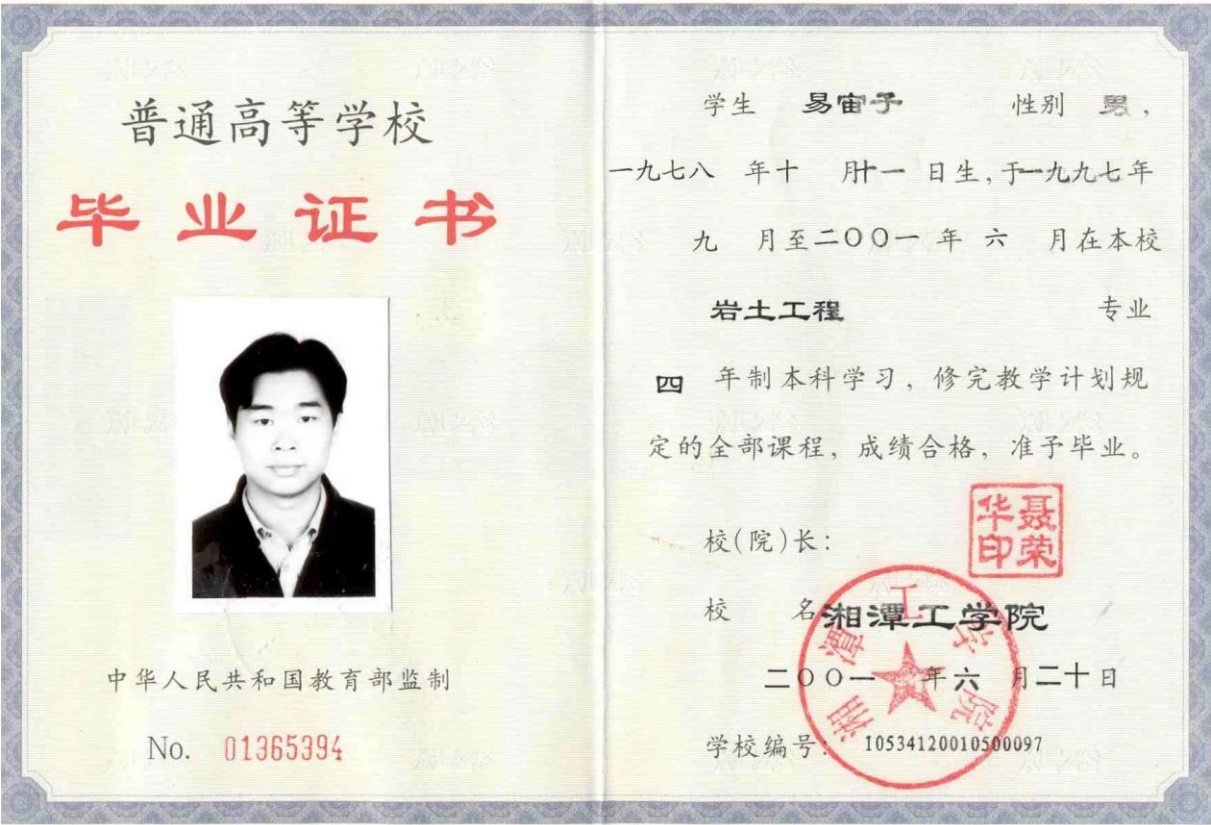 普通高等学校
毕业证书
中华人民共和国教育部监制
No. 01365394
学生 易宙子 性别 男,
一九七八 年十 月十一 日生,于一九九七年
九 月至二〇〇一 年 六 月在本校
岩土工程 专业
四 年制本科学习,修完教学计划规
定的全部课程,成绩合格,准予毕业。
校(院)长:
聂荣华印
校 名 湘潭工学院
湘潭工学院
二〇〇一 年六 月二十日
学校编号: 10534120010500097